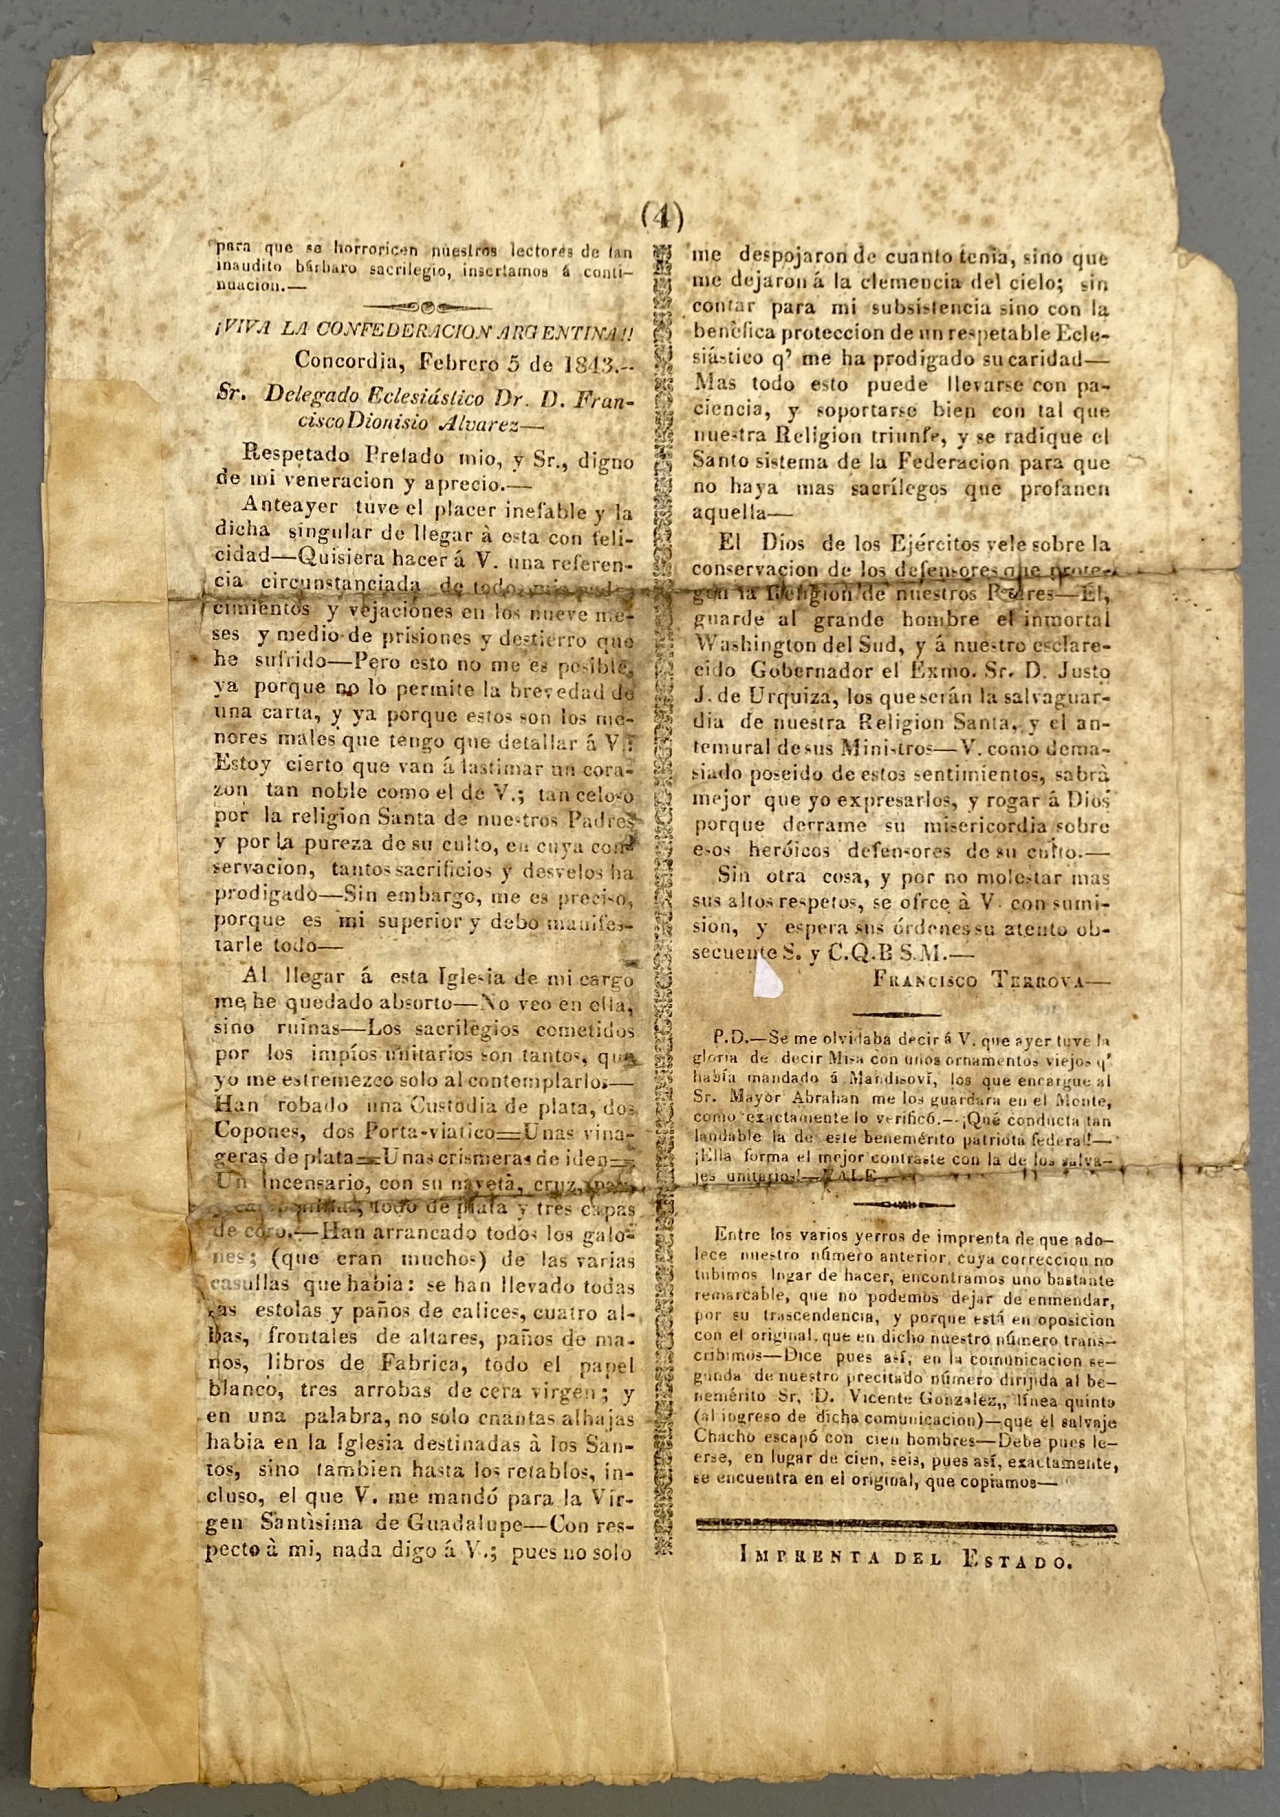 (4)
para que se horroricen nuestros lectores de tan
inaudito bárbaro sacrilegio, insertamos á conti-
nuacion.—
¡VIVA LA CONFEDERACION ARGENTINA!!
Concordia, Febrero 5 de 1843.--
Sr. Delegado Eclesiástico Dr. D. Fran-
cisco Dionisio Alvarez—
Respetado Prelado mio, y Sr., digno
de mi veneracion y aprecio.—
Anteayer tuve el placer inefable y la
dicha singular de llegar à esta con feli-
cidad—Quisiera hacer á V. una referen-
cia circunstanciada de todo mis pade-
cimientos y vejaciones en los nueve me-
ses y medio de prisiones y destierro que
he sufrido—Pero esto no me es posible,
ya porque no lo permite la brevedad de
una carta, y ya porque estos son los me-
nores males que tengo que detallar á V.:
Estoy cierto que van á lastimar un cora-
zon tan noble como el de V.; tan celoso
por la religion Santa de nuestros Padres
y por la pureza de su culto, en cuya con-
servacion, tantos sacrificios y desvelos ha
prodigado—Sin embargo, me es preciso,
porque es mi superior y debo manifes-
tarle todo—
Al llegar á esta Iglesia de mi cargo
me he quedado absorto—No veo en ella,
sino ruinas—Los sacrilegios cometidos
por los impíos unitarios son tantos, que
yo me estremezco solo al contemplarlos—
Han robado una Custodia de plata, dos
Copones, dos Porta-viatico=Unas vina-
geras de plata=Unas crismeras de iden=
Un incensario, con su naveta, cruz,
todo de plata y tres capas
de coro.—Han arrancado todos los galo-
nes; (que eran muchos) de las varias
casullas que habia: se han llevado todas
las estolas y paños de calices, cuatro al-
bas, frontales de altares, paños de ma-
nos, libros de Fabrica, todo el papel
blanco, tres arrobas de cera virgen; y
en una palabra, no solo cuantas alhajas
habia en la Iglesia destinadas à los San-
tos, sino tambien hasta los retablos, in-
cluso, el que V. me mandó para la Vír-
gen Santìsima de Guadalupe—Con res-
pecto à mi, nada digo á V.; pues no solo
me despojaron de cuanto tenia, sino que
me dejaron á la clemencia del cielo; sin
contar para mi subsistencia sino con la
benèfica proteccion de un respetable Ecle-
siástico q' me ha prodigado su caridad—
Mas todo esto puede llevarse con pa-
ciencia, y soportarse bien con tal que
nuestra Religion triunfe, y se radique el
Santo sistema de la Federacion para que
no haya mas sacrílegos que profanen
aquella—
El Dios de los Ejércitos vele sobre la
conservacion de los defensores que prote-
gen la Religion de nuestros Padres—El,
guarde al grande hombre el inmortal
Washington del Sud, y á nuestro esclare-
cido Gobernador el Exmo. Sr. D. Justo
J. de Urquiza, los que serán la salvaguar-
dia de nuestra Religion Santa, y el an-
temural de sus Ministros—V. como dema-
siado poseido de estos sentimientos, sabrà
mejor que yo expresarlos, y rogar á Dios
porque derrame su misericordia sobre
esos heróicos defensores de su culto.—
Sin otra cosa, y por no molestar mas
sus altos respetos, se ofrce à V. con sumi-
sion, y espera sus órdenes su atento ob-
secuente S. y C.Q.B S.M.—
FRANCISCO TERROVA—
P.D.—Se me olvidaba decir á V. que ayer tuve la
gloria de decir Misa con unos ornamentos viejos q'
había mandado á Mandisoví, los que encargue al
Sr. Mayor Abrahan me los guardara en el Monte,
como exactamente lo verificó.—¡Qué conducta tan
laudable la de este benemérito patriota federal!—
¡Ella forma el mejor contraste con la de los salva-
jes unitarios!—VALE
Entre los varios yerros de imprenta de que ado-
lece nuestro número anterior, cuya correccion no
tubimos lugar de hacer, encontramos uno bastante
remarcable, que no podemos dejar de enmendar,
por su trascendencia, y porque está en oposicion
con el original, que en dicho nuestro número trans-
cribimos—Dice pues así, en la comunicacion se-
gunda de nuestro precitado número dirijida al be-
nemérito Sr, D. Vicente Gonzalez,, línea quinta
(al ingreso de dicha comunicacion)—que el salvaje
Chacho escapó con cien hombres—Debe pues le-
erse, en lugar de cien, seis, pues así, exactamente,
se encuentra en el original, que copiamos—
IMPRENTA DEL ESTADO.